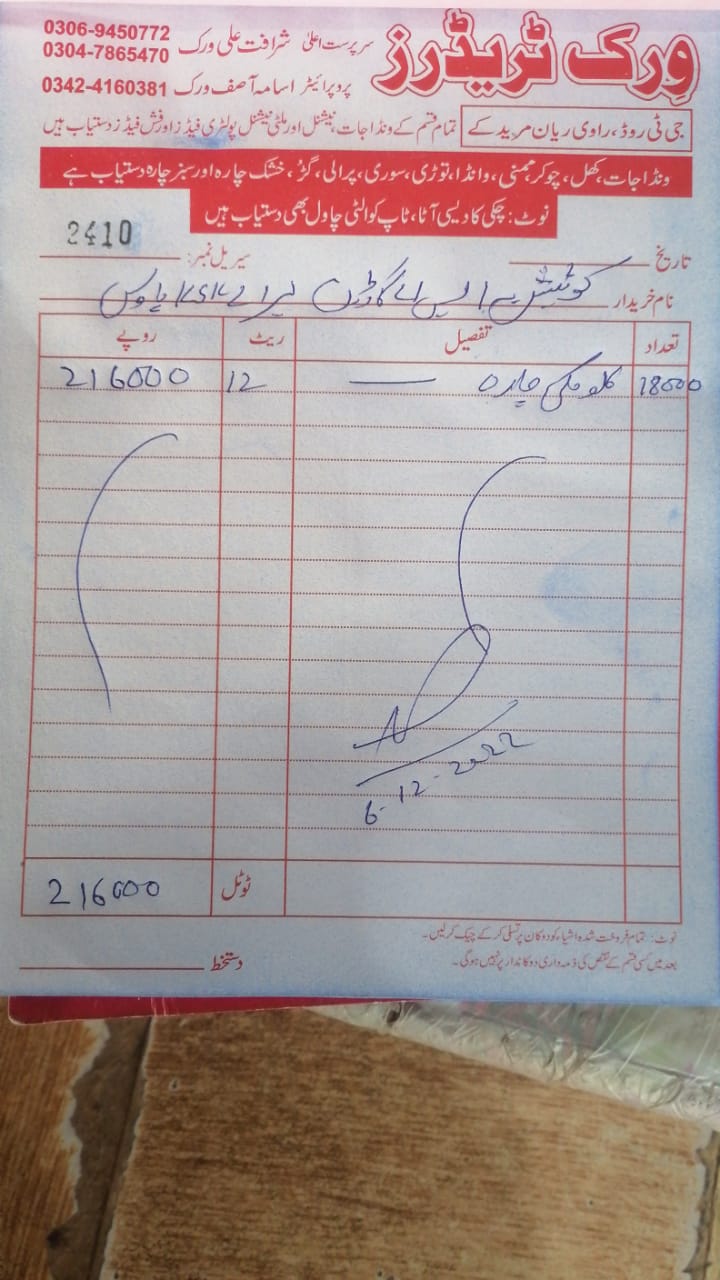 ورک ٹریڈرز
سرپرست اعلیٰ شرافت علی ورک 0306-9450772
0304-7865470
پروپرائیٹر اسامہ آصف ورک 0342-4160381
جی ٹی روڈ، راوی ریان مریدکے
تمام قسم کے ونڈا جات، نیشنل اور ملٹی نیشنل پولٹری فیڈز اور فش فیڈز دستیاب ہیں
ونڈا جات، کھل، چوکر، ممنی، وانڈا، توڑی، سوری، پرالی، گڑ، خشک چارہ اور سبز چارہ دستیاب ہے
نوٹ: چکی کا دیسی آٹا، ٹاپ کوالٹی چاول بھی دستیاب ہیں
تاریخ سیریل نمبر: 2410
نام خریدار
تعداد تفصیل ریٹ روپے
18000 کلو مکئی چارہ 12 216000
6-12-2022
ٹوٹل 216000
نوٹ: تمام فروخت شدہ اشیاء کو دوکان پر تسلی کر کے چیک کر لیں۔
بعد میں کسی قسم کے نقص کی ذمہ داری دوکاندار پر نہیں ہوگی۔
دستخط